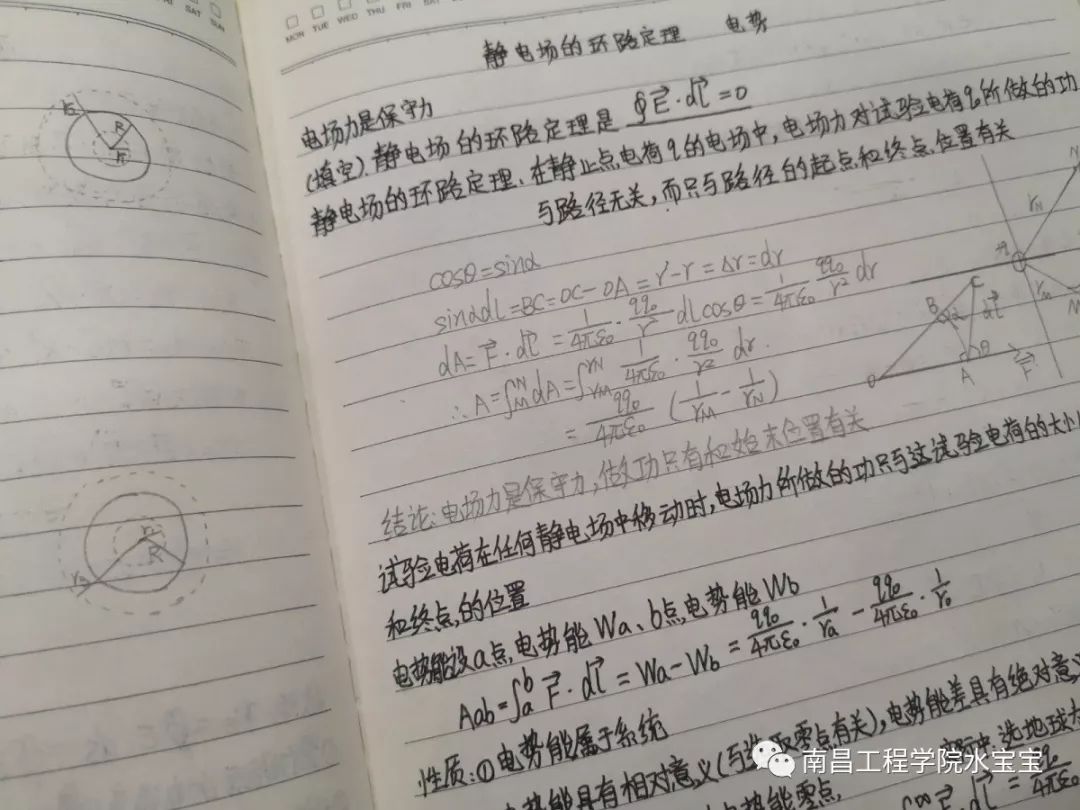 SAT SUN
MON TUE WED THU FRI SAT
静电场的环路定理 电势
电场力是保守力
(填空)静电场的环路定理是 ∮E⃗·dl⃗=0
静电场的环路定理、在静止点电荷q的电场中,电场力对试验电荷q₀所做的功
与路径无关,而只与路径的起点和终点位置有关
cosθ=sinα
sinαdl=BC=OC-OA=r'-r=Δr=dr
dA=F⃗·dl⃗=1/4πε₀·qq₀/r² dlcosθ=1/4πε₀ qq₀/r² dr
∴A=∫_M^N dA=∫_{rM}^{rN} 1/4πε₀·qq₀/r² dr.
=qq₀/4πε₀ (1/r_M-1/r_N)
结论:电场力是保守力,做功只有和始末位置有关
试验电荷在任何静电场中移动时,电场力所做的功只与这试验电荷的大小
和终点的位置
电势能设a点电势能Wa、b点电势能Wb
Aab=∫_a^b F⃗·dl⃗=Wa-Wb=qq₀/4πε₀·1/ra-qq₀/4πε₀·1/r₀
性质:①电势能属于系统
电势能具有相对意义(与选取零点有关),电势能差具有绝对意义
选地球
电势能零点
qq₀/4πε₀
r₂ R r₁
r₁ R r₂
r_N
r_M
B C α dl⃗ θ O A F⃗
南昌工程学院水宝宝